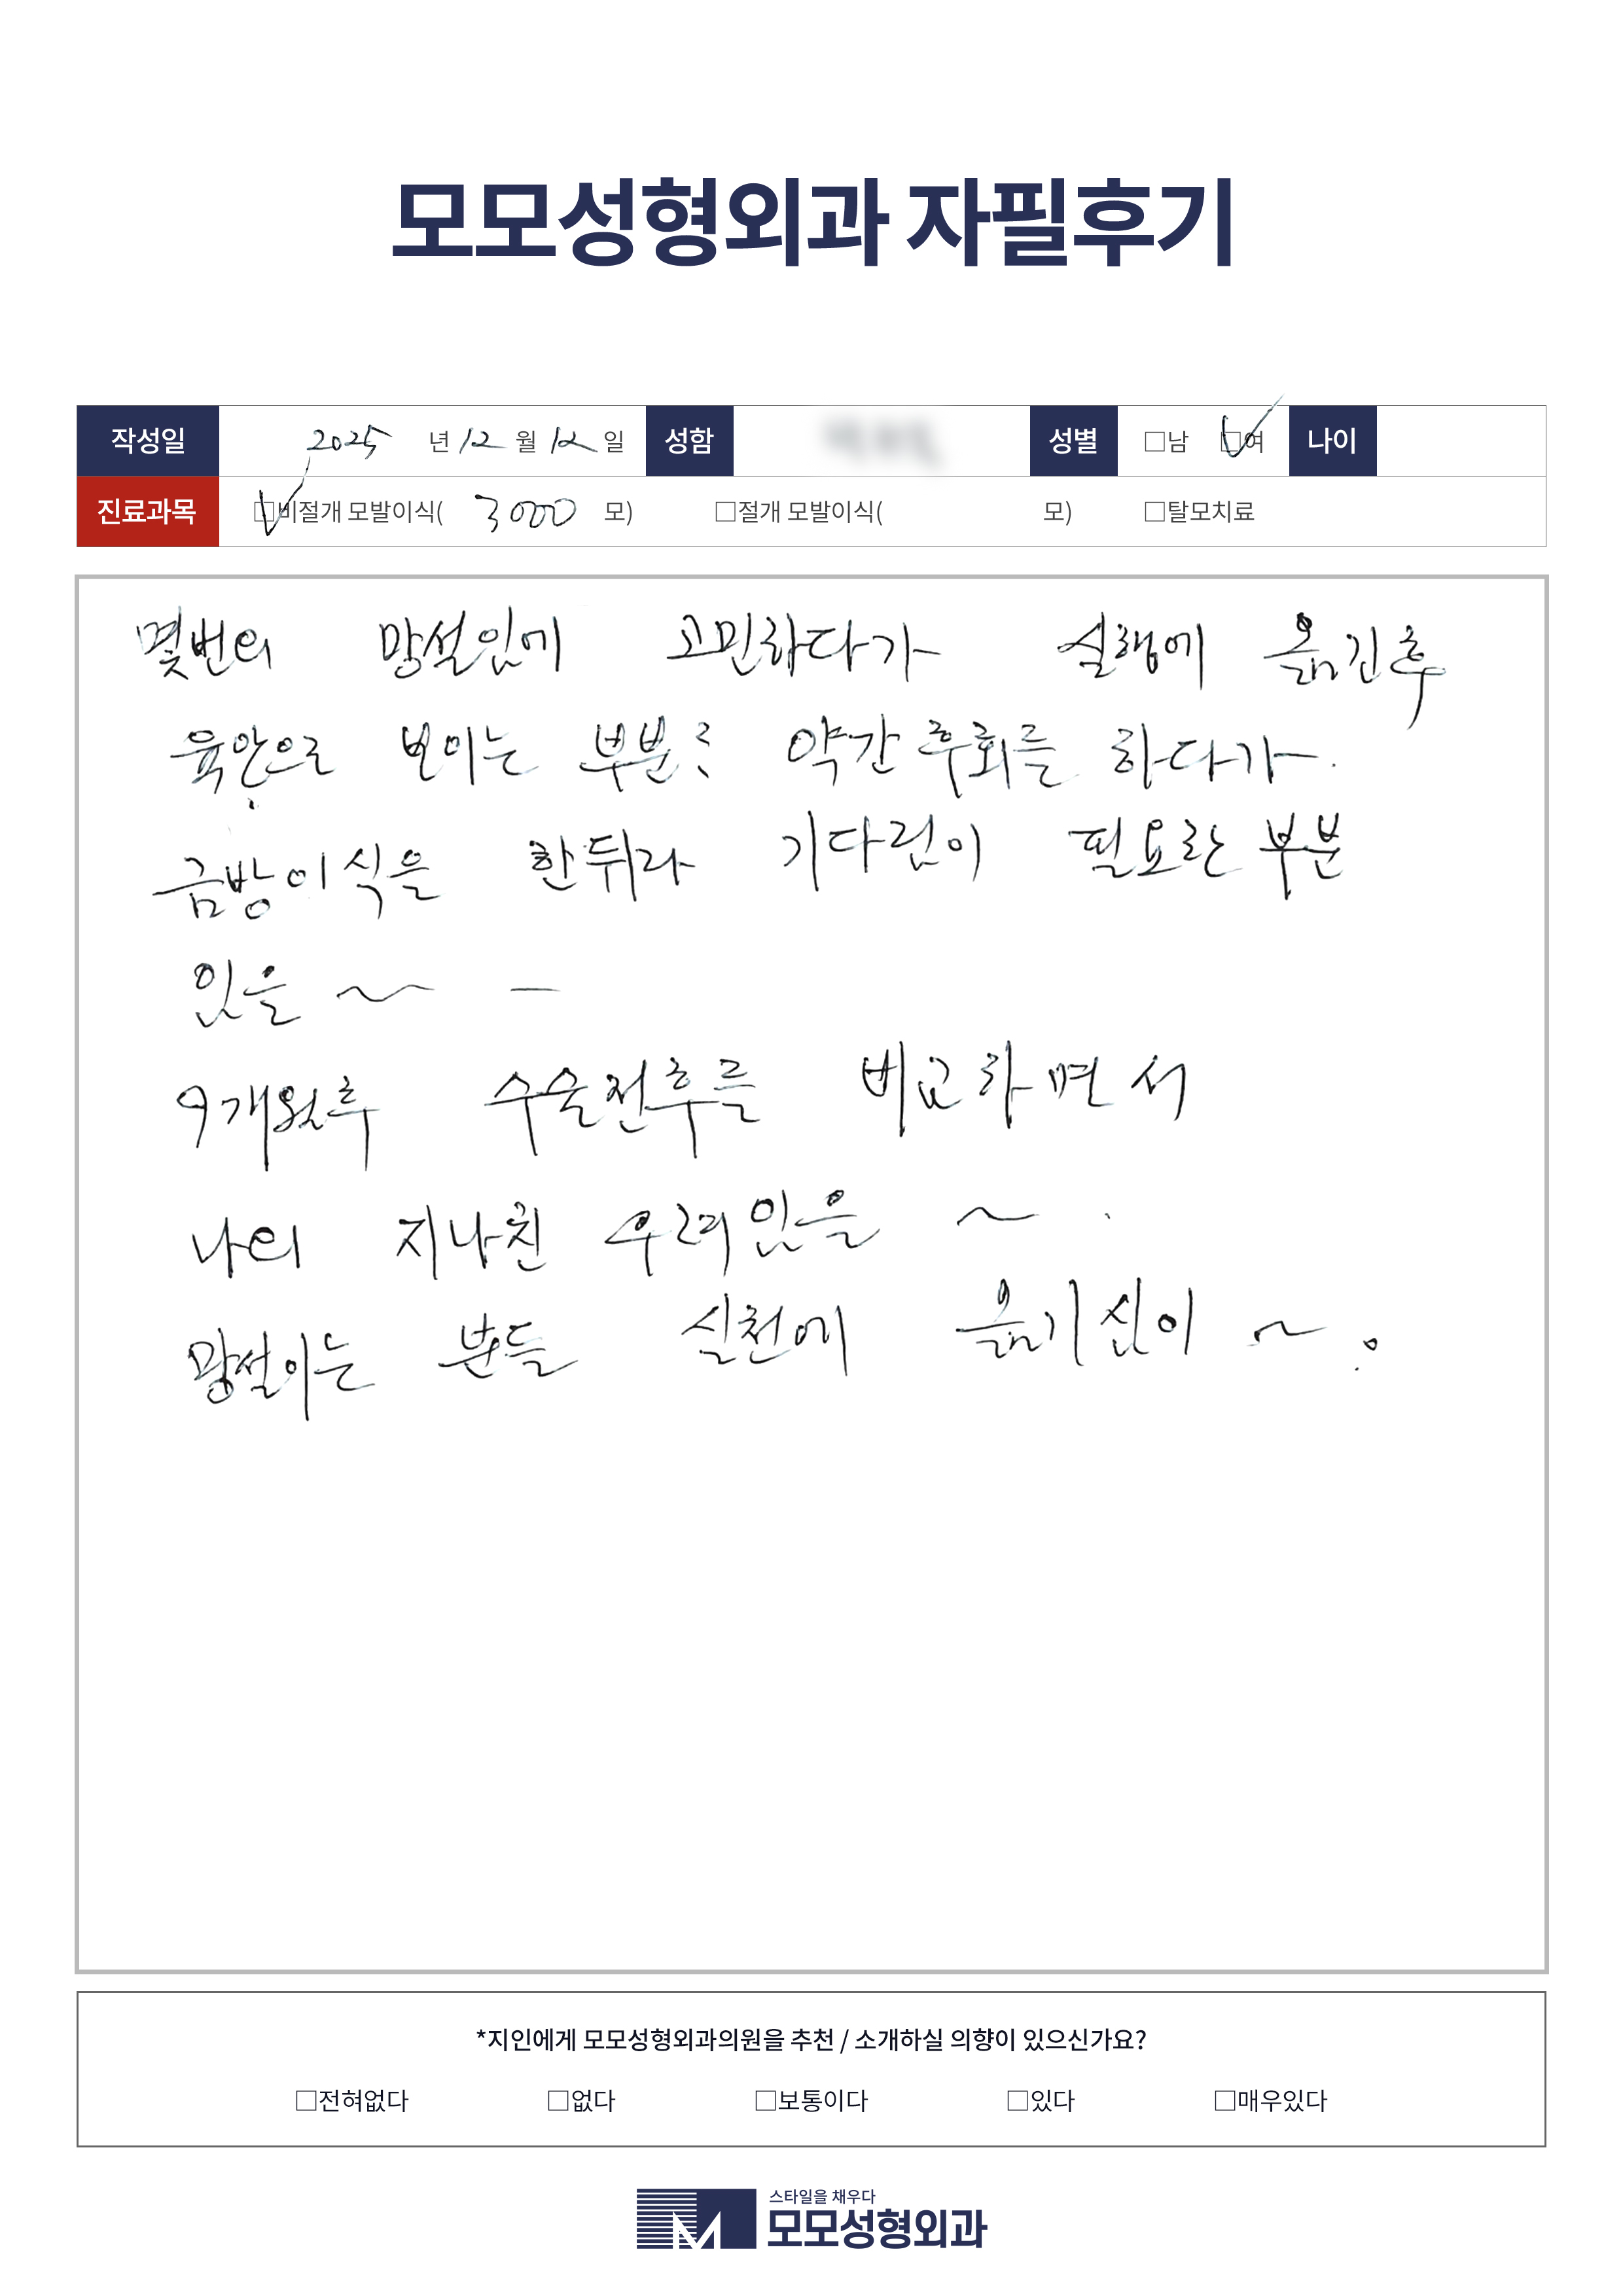 모모성형외과 자필후기
작성일 2025 년 12 월 12 일 성함 성별 □남 □여 나이
진료과목 □비절개 모발이식( 3000 모) □절개 모발이식( 모) □탈모치료
몇번의 망설임에 고민하다가 실행에 옮긴후
육안으로 보이는 부분? 약간 후회를 하다가.
금방이식을 한뒤라 기다림이 필요한 부분
있을 ~ -
9개월후 수술전후를 비교하면서
나의 지나친 우려있을 ~ .
망설이는 분들 실천에 옮기심이 ~ .
*지인에게 모모성형외과의원을 추천 / 소개하실 의향이 있으신가요?
□전혀없다 □없다 □보통이다 □있다 □매우있다
스타일을 채우다
모모성형외과